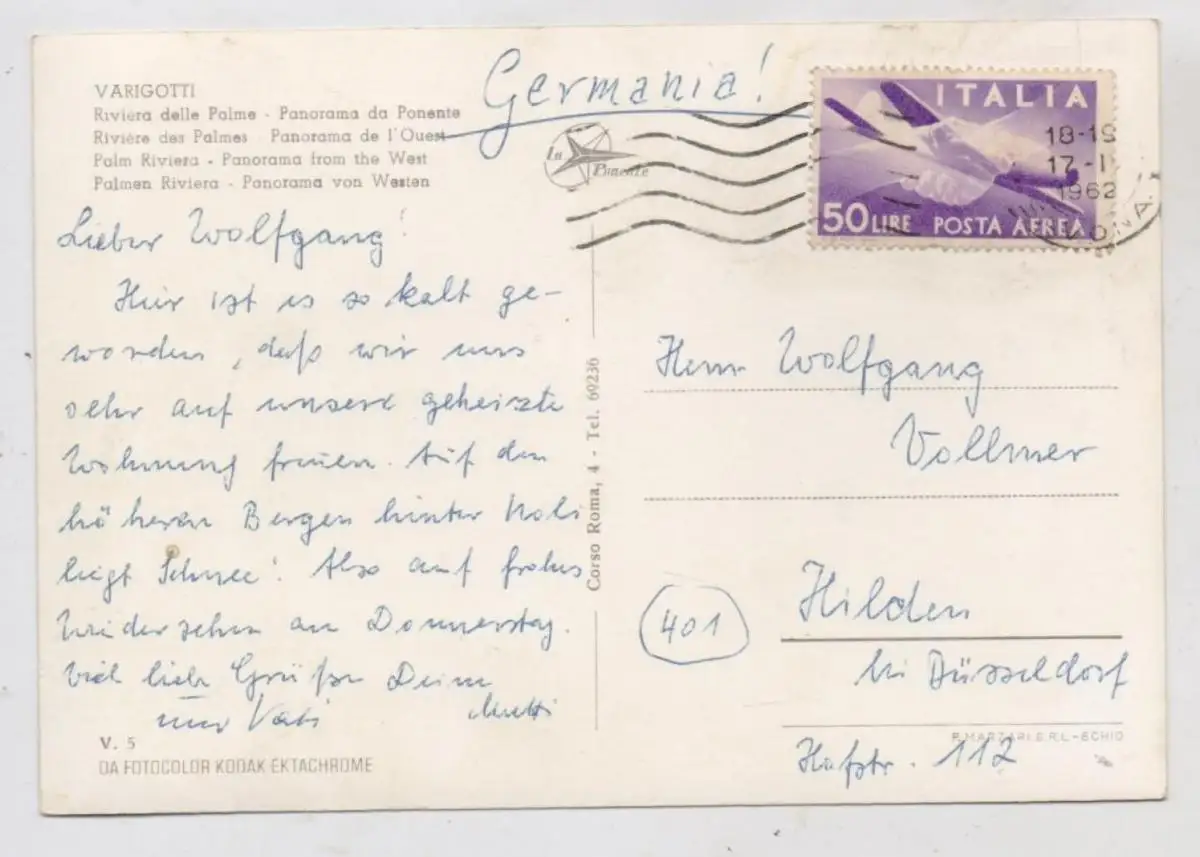 Germania!
VARIGOTTI
Riviera delle Palme - Panorama da Ponente
Rivière des Palmes - Panorama de l'Ouest
Palm Riviera - Panorama from the West
Palmen Riviera - Panorama von Westen
ITALIA
50 LIRE POSTA AEREA
18-19
17-1
1962
Lieber Wolfgang!
Hier ist es so kalt ge-
worden, daß wir uns
sehr auf unsere geheizte
Wohnung freuen. Auf den
höheren Bergen hinter Noli
liegt Schnee! Also auf frohes
Wiedersehn am Donnerstag.
Viel liebe Grüße Deine
Mutti
und Vati
V. 5
DA FOTOCOLOR KODAK EKTACHROME
Corso Roma, 4 - Tel. 69236
Herrn Wolfgang
Vollmer
401
Hilden
bei Düsseldorf
Hofstr. 112